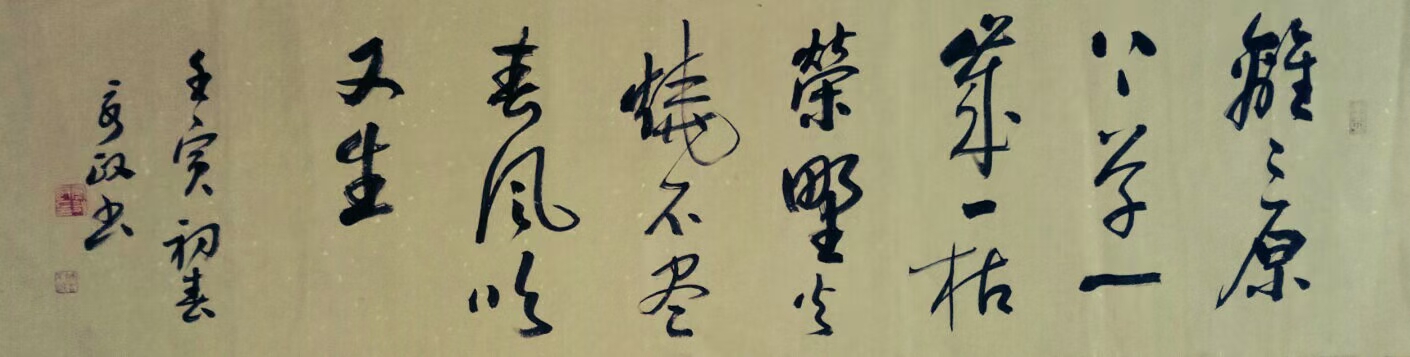 離〻原
上草一
歲一枯
榮野火
燒不尽
春風吹
又生
壬寅初春
政书